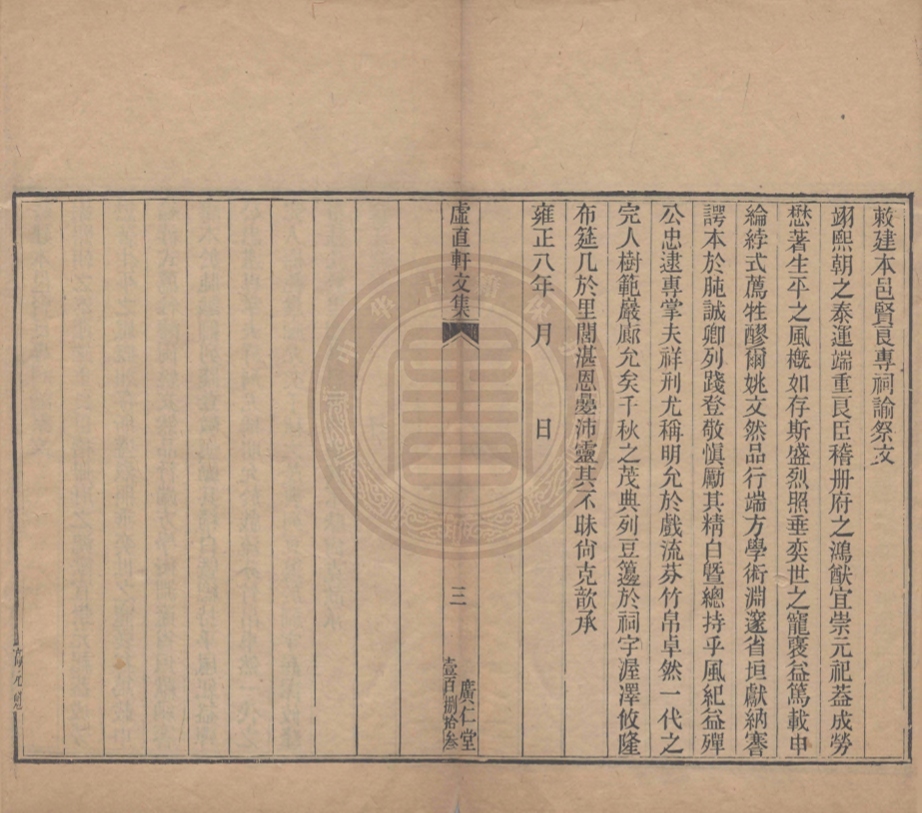 敕建本邑賢良專祠諭祭文
翊熙朝之泰運端重良臣稽册府之鴻猷宜崇元祀葢成勞
懋著生平之風概如存斯盛烈照垂奕世之寵褒益篤載申
綸綍式薦牲醪爾姚文然品行端方學術淵邃省垣獻納謇
諤本於肫誠卿列踐登敬慎勵其精白曁總持乎風紀益殫
公忠逮專掌夫祥刑尤稱明允於戲流芬竹帛卓然一代之
完人樹範巖廊允矣千秋之茂典列豆籩於祠宇渥澤攸隆
布筵几於里閭湛恩疊沛靈其不昧尙克歆承
雍正八年　月　　日
虛直軒文集
三
廣仁堂
壹百捌拾叁